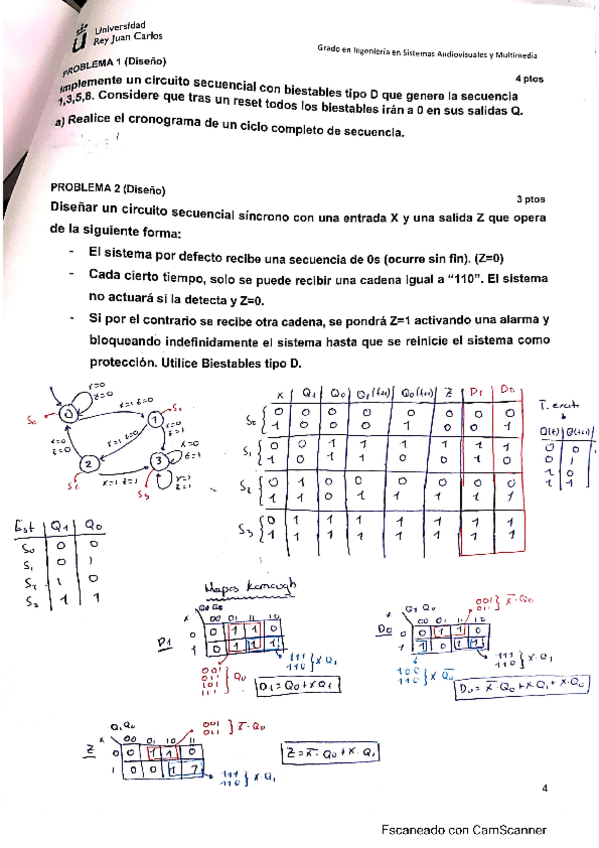 Universidad
Rey Juan Carlos
Grado en Ingeniería en Sistemas Audiovisuales y Multimedia
PROBLEMA 1 (Diseño)
4 ptos
Implemente un circuito secuencial con biestables tipo D que genere la secuencia
1,3,5,8. Considere que tras un reset todos los biestables irán a 0 en sus salidas Q.
a) Realice el cronograma de un ciclo completo de secuencia.
PROBLEMA 2 (Diseño)
3 ptos
Diseñar un circuito secuencial síncrono con una entrada X y una salida Z que opera
de la siguiente forma:
- El sistema por defecto recibe una secuencia de 0s (ocurre sin fin). (Z=0)
- Cada cierto tiempo, solo se puede recibir una cadena igual a “110”. El sistema
no actuará si la detecta y Z=0.
- Si por el contrario se recibe otra cadena, se pondrá Z=1 activando una alarma y
bloqueando indefinidamente el sistema hasta que se reinicie el sistema como
protección. Utilice Biestables tipo D.
X Q1 Q0 Q1(t+1) Q0(t+1) Z D1 D0
S0 0 0 0 0 0 0 0 0
1 0 0 0 1 0 0 1
S1 0 0 1 1 1 1 1 1
1 0 1 1 0 0 1 0
S2 0 1 0 0 0 0 0 0
1 1 0 1 1 1 1 1
S3 0 1 1 1 1 1 1 1
1 1 1 1 1 1 1 1
Q(t) Q(t+1)
0 0
0 1
1 0
1 1
Est Q1 Q0
S0 0 0
S1 0 1
S2 1 0
S3 1 1
Mapas Karnaugh
D1
00 01 11 10
0 0 1 1 0
1 0 1 1 1
D1 = Q0 + X Q1
D0
Q1 Q0
00 01 11 10
0 0 1 1 0
1 1 0 1 1
D0 = X̄·Q0 + X·Q1 + X·Q̄0
Z
Q1 Q0
0 0 1 1 0
1 0 0 1 1
001
011 } X̄·Q0
111
110 } X·Q1
Z = X̄·Q0 + X·Q1
4
Escaneado con CamScanner